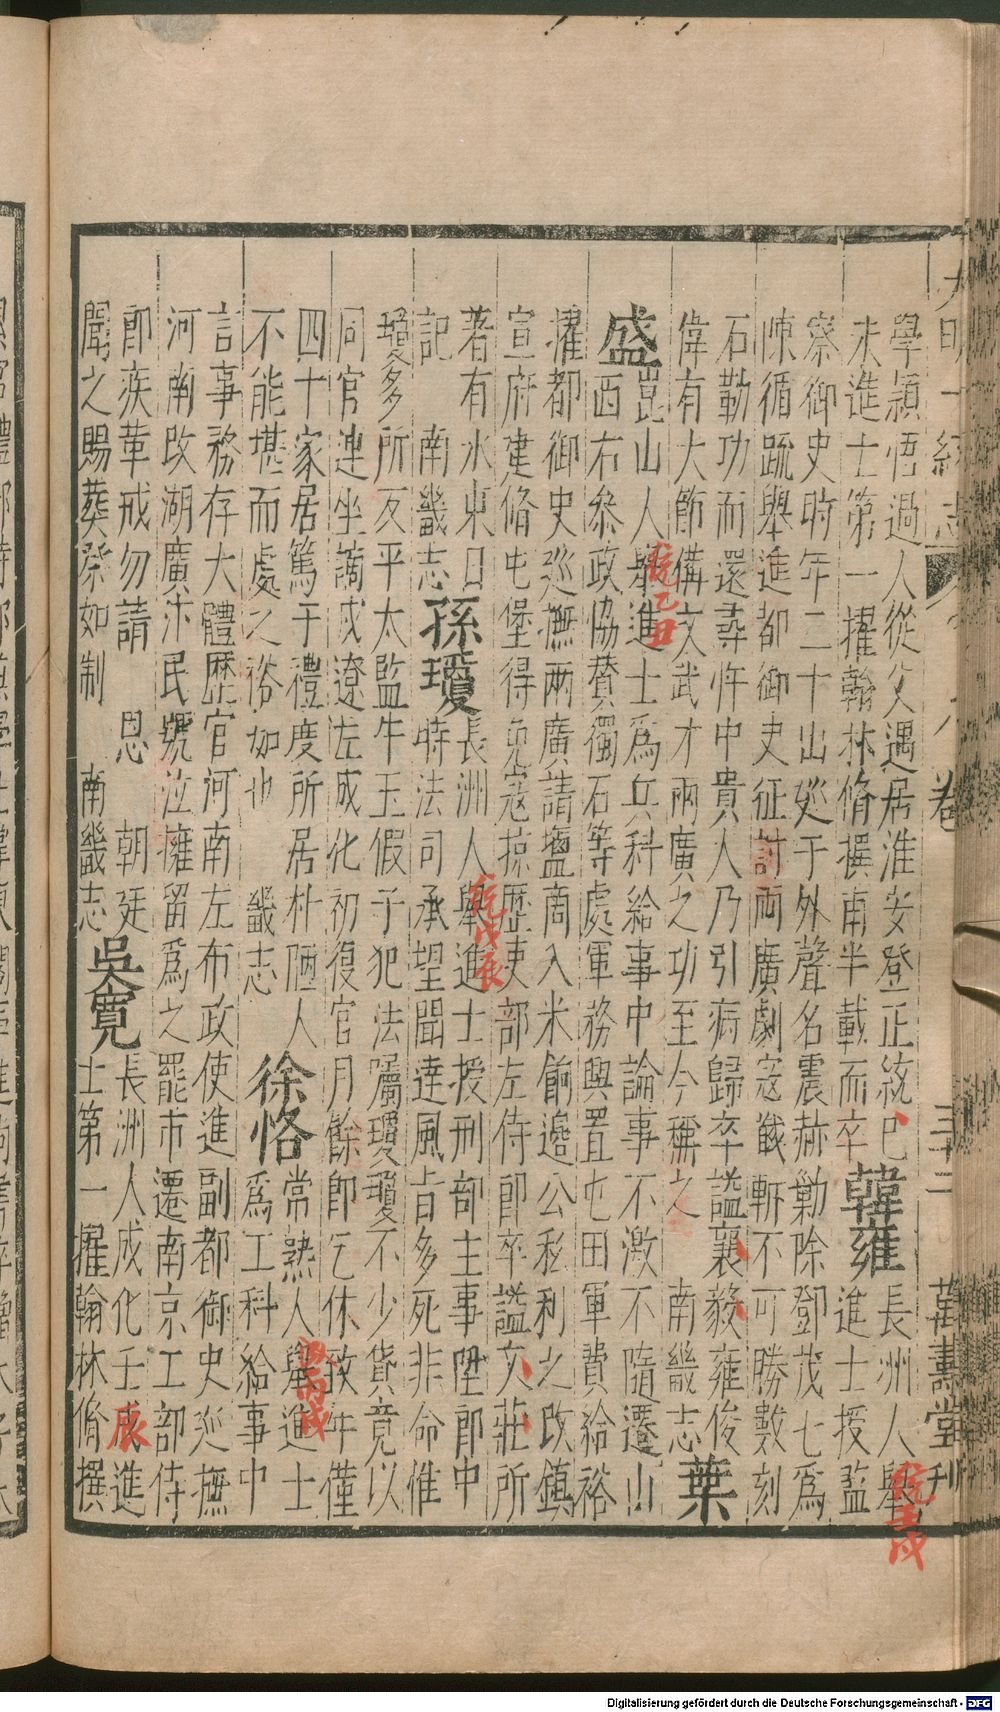 學頴悟過人從父遇居淮安登正統己
未進士第一擢翰林脩撰南半載而卒韓雍長洲人舉
進士授監
察御史時年二十出廵于外聲名震赫勦除鄧茂七爲
陳循䟽舉進都御史征討兩廣劇宼㦰斬不可勝數刻
石勒功而還尋忤中貴人乃引病歸卒謚襄毅雍俊
偉有大節備文武才兩廣之功至今稱之 南畿志葉
盛崑山人舉進士爲兵科給事中論事不激不隨遷山
西右叅政協贊獨石等處軍務興置屯田軍費給裕
擢都御史廵撫兩廣請鹽商入米餉邊公私利之改鎮
宣府建脩屯堡得免寇掠歴吏部左侍郎卒謚文莊所
著有水東日
記 南畿志孫瓊長洲人舉進士授刑部主事陞郎中
時法司承望聞達風旨多死非命惟
瓊多所反平太監牛玉假子犯法屬瓊瓊不少貸竟以
同官連坐謫戍遼左成化初復官月餘卽乞休致年僅
四十家居篤于禮度所居朴陋人
不能堪而處之裕如也 畿志徐恪常熟人舉進士
爲工科給事中
言事務存大體歴官河南左布政使進副都御史廵撫
河南改湖廣宋民號泣擁留爲之罷市遷南京工部侍
郎疾革戒勿請 恩 朝廷
聞之賜葬祭如制 南畿志吳寛長洲人成化壬辰進
士第一擢翰林脩撰
大明一統志
卷
三十二
萬壽堂刊
統乙丑
統戊辰
統壬戌
成丙戌
辰
Digitalisierung gefördert durch die Deutsche Forschungsgemeinschaft - DFG